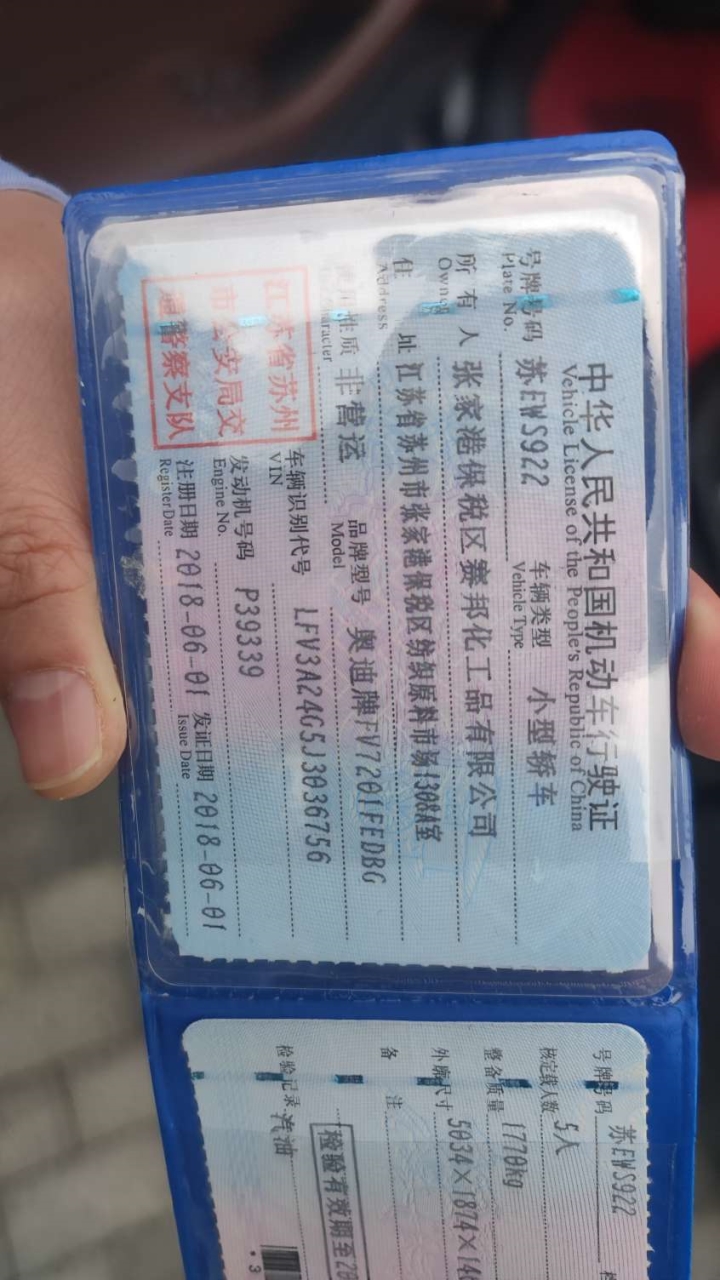 中华人民共和国机动车行驶证
Vehicle License of the People's Republic of China
号牌号码 苏EWS922 车辆类型 小型轿车
Plate No. Vehicle Type
所有人 张家港保税区赛邦化工品有限公司
Owner
住址 江苏省苏州市张家港保税区纺织原料市场1308A室
Address
使用性质 非营运 品牌型号 奥迪牌FV7201FEDBG
Character Model
江苏省苏州
市公安局交
通警察支队
车辆识别代号 LFV3A24G5J3036756
VIN
发动机号码 P39339
Engine No.
注册日期 2018-06-01 发证日期 2018-06-01
Register Date Issue Date
号牌号码 苏EWS922
核定载人数 5人
整备质量 1770kg
外廓尺寸 5034×1874×
备注
检验有效期至
检验记录 汽油